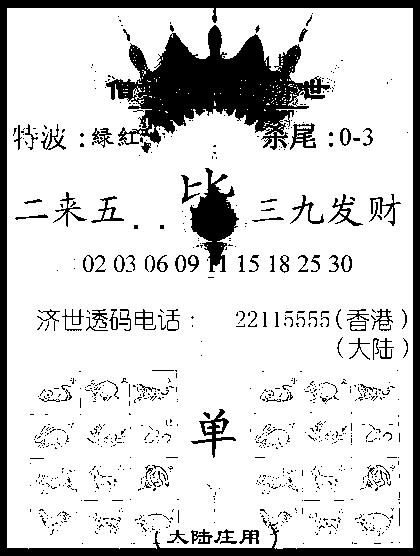 世
特波:綠紅
杀尾:0-3
二来五..
三九发财
02 03 06 09 11 15 18 25 30
济世透码电话: 22115555(香港)
(大陆)
单
(大陆庄用)